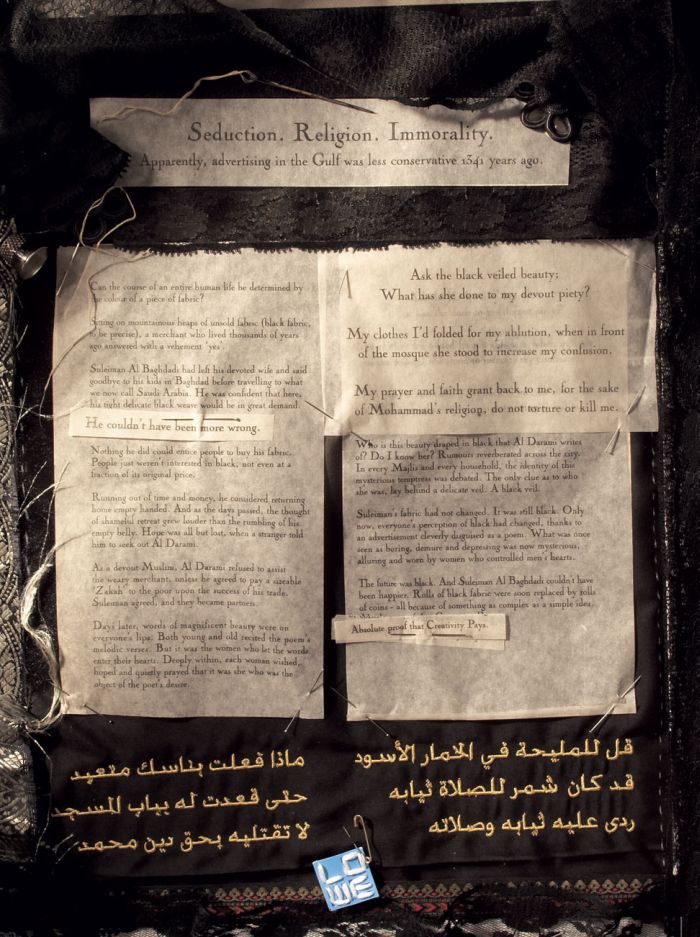 Seduction. Religion. Immorality.
Apparently, advertising in the Gulf was less conservative 1341 years ago.
Can the course of an entire human life be determined by
the colour of a piece of fabric?
Sitting on mountainous heaps of unsold fabric (black fabric,
to be precise), a merchant who lived thousands of years
ago answered with a vehement 'yes'.
Suleiman Al Baghdadi had left his devoted wife and said
goodbye to his kids in Baghdad before travelling to what
we now call Saudi Arabia. He was confident that here,
his tight delicate black weave would be in great demand.
He couldn't have been more wrong.
Nothing he did could entice people to buy his fabric.
People just weren't interested in black, not even at a
fraction of its original price.
Running out of time and money, he considered returning
home empty handed. And as the days passed, the thought
of shameful retreat grew louder than the rumbling of his
empty belly. Hope was all but lost, when a stranger told
him to seek out Al Darami.
As a devout Muslim, Al Darami refused to assist
the weary merchant, unless he agreed to pay a sizeable
'Zakah' to the poor upon the success of his trade.
Suleiman agreed, and they became partners.
Days later, words of magnificent beauty were on
everyone's lips. Both young and old recited the poem's
melodic verses. But it was the women who let the words
enter their hearts. Deeply within, each woman wished,
hoped and quietly prayed that it was she who was the
object of the poet's desire.
Ask the black veiled beauty;
What has she done to my devout piety?
My clothes I'd folded for my ablution, when in front
of the mosque she stood to increase my confusion.
My prayer and faith grant back to me, for the sake
of Mohammad's religion, do not torture or kill me.
Who is this beauty draped in black that Al Darami writes
of? Do I know her? Rumours reverberated across the city.
In every Majlis and every household, the identity of this
mysterious temptress was debated. The only clue as to who
she was, lay behind a delicate veil. A black veil.
Suleiman's fabric had not changed. It was still black. Only
now, everyone's perception of black had changed, thanks to
an advertisement cleverly disguised as a poem. What was once
seen as boring, demure and depressing was now mysterious,
alluring and worn by women who controlled men's hearts.
The future was black. And Suleiman Al Baghdadi couldn't have
been happier. Rolls of black fabric were soon replaced by rolls
of coins - all because of something as complex as a simple idea.
Absolute proof that Creativity Pays.
قل للمليحة في الخمار الأسود ماذا فعلت بناسك متعبد
قد كان شمر للصلاة ثيابه حتى قعدت له بباب المسجد
ردي عليه ثيابه وصلاته لا تقتليه بحق دين محمد
LOWE